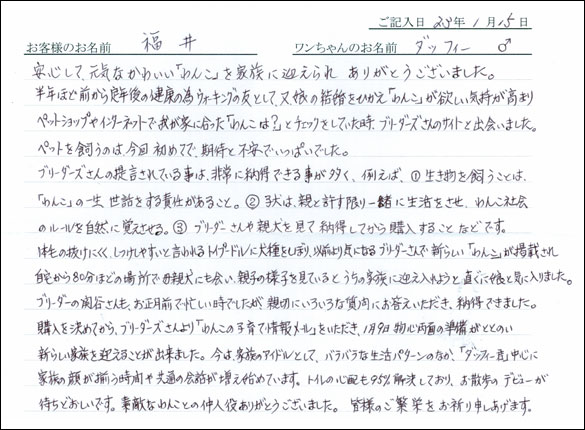 ご記入日 23年 1月 15日
お客様のお名前 福井 ワンちゃんのお名前 ダッフィー ♂
安心して、元気なかわいい「わんこ」を家族に迎えられ ありがとうございました。
半年ほど前から定年後の健康の為ウォーキングの友として、又娘の結婚をひかえ「わんこ」が欲しい気持が高まり
ペットショップやインターネットで我が家に合った「わんこは?」とチェックをしていた時、ブリーダーズさんのサイトと出会いました。
ペットを飼うのは、今回初めてで、期待と不安でいっぱいでした。
ブリーダーズさんの提言されている事は、非常に納得できる事が多く、例えば、① 生き物を飼うことは、
「わんこ」の一生、世話をする責任があること。② 子犬は、親と許す限り一緒に生活をさせ、わんこ社会
のルールを自然に覚えさせる。③ ブリーダーさんや親犬を見て納得してから購入すること などです。
体毛の抜けにくく、しつけしやすいと言われるトイプードルに犬種をしぼり、以前より気になるブリーダーさんで新しい「わんこ」が掲載され
自宅から80分ほどの場所で母親犬にも会い、親子の様子を見ていると、うちの家族に迎え入れようと直ぐに娘と気に入りました。
ブリーダーの関谷さんも、お正月前で忙しい時でしたが、親切にいろいろな質問にお答えいただき、納得できました。
購入を決めてから、ブリーダーズさんより「わんこの子育て情報メール」をいただき、1月9日物心両面の準備がととのい
新しい家族を迎えることが出来ました。今は、家族のアイドルとして、バラバラな生活パターンのなか、「ダッフィー」を中心に
家族の顔が揃う時間や共通の会話が増え始めています。トイレの心配も95%解決しており、お散歩のデビューが
待ちどおしいです。素敵なわんことの仲人役ありがとうございました。 皆様のご繁栄をお祈り申しあげます。